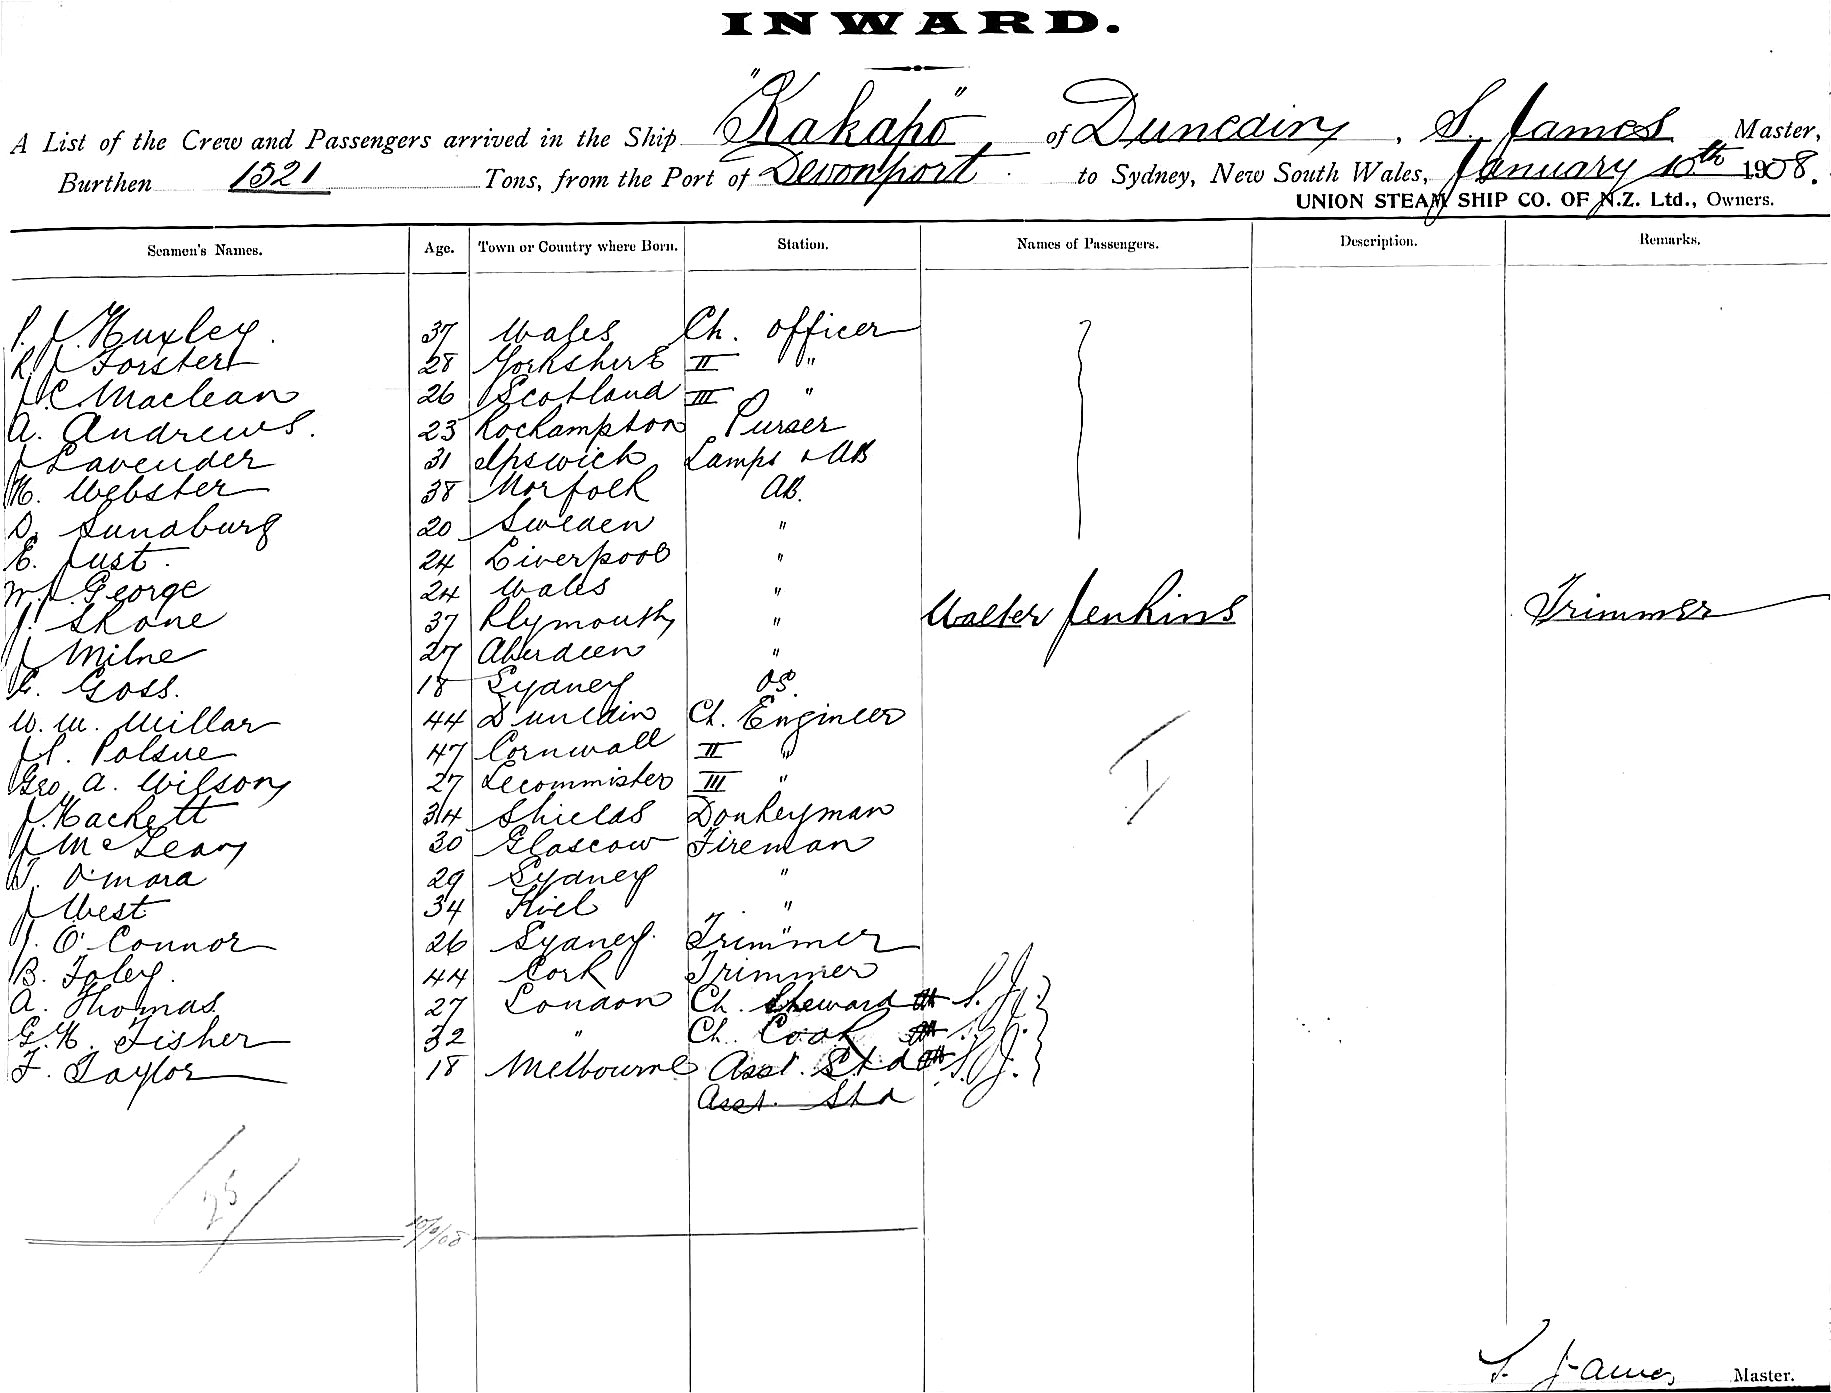 INWARD.
A List of the Crew and Passengers arrived in the Ship "Kakapo" of Dunedin, S. James Master,
Burthen 1521 Tons, from the Port of Devonport to Sydney, New South Wales, January 10th 1908.
UNION STEAM SHIP CO. OF N.Z. Ltd., Owners.
Seamen's Names. Age. Town or Country where Born. Station. Names of Passengers. Description. Remarks.
P. J. Huxley. 37 Wales Ch. Officer
R J Forster 28 Yorkshire II "
J C Maclean 26 Scotland III "
A. Andrews. 23 Rockampton Purser
J Lavender 31 Ipswich Lamps & AB
H. Webster 38 Norfolk AB.
D. Sundburg 20 Sweden "
E. Just. 24 Liverpool "
W. J. George 24 Wales "
J. Skone 37 Plymouth " Walter Jenkins Trimmer
J Milne 27 Aberdeen "
Goss. 18 Sydney OS.
W. W. Millar 44 Dunedin Ch. Engineer
J P. Polsue 47 Cornwall II "
Geo A. Wilson 27 Leommister III "
J. Hackett 34 Shields Donkeyman
J McLean 30 Glascow Fireman
T. O'Mara 29 Sydney "
J West 34 Kiel "
J. O'Connor 26 Sydney. Trimmer
B. Foley. 44 Cork Trimmer
A. Thomas 27 London Ch. Steward S. J.
G. H. Fisher 32 " Ch. Cook S. J.
F. Taylor 18 Melbourne Asst. Std S. J.
Asst. Std
1
25
S. James Master.